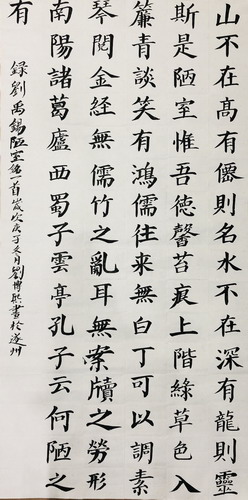 山不在高有僊則名水不在深有龍則靈
斯是陋室惟吾德馨苔痕上階綠草色入
簾青談笑有鴻儒往来無白丁可以調素
琴閱金経無儒竹之亂耳無案牘之勞形
南陽諸葛廬西蜀子雲亭孔子云何陋之
有
錄劉禹錫陋室銘一首歲次庚子冬月劉博熙書於遂州